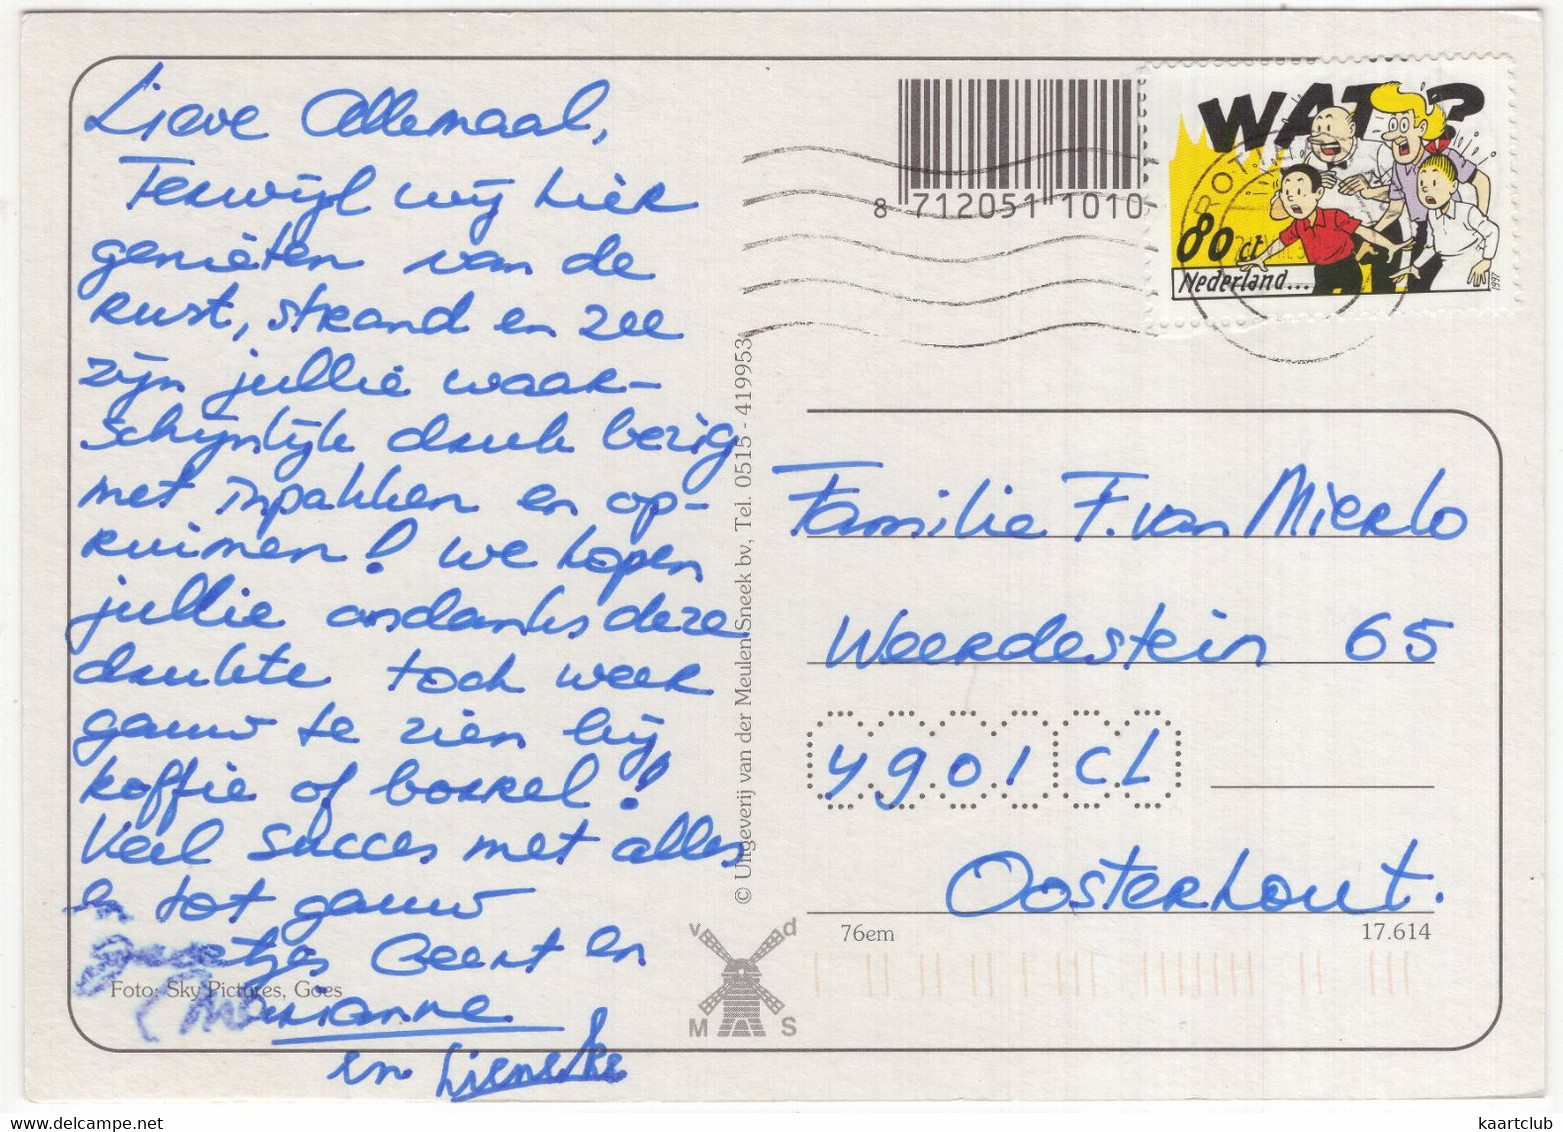 Lieve Allemaal,
Terwijl wij hier
geniëten van de
rust, strand en zee
zijn jullie waar-
schijnlijk druk bezig
met inpakken en op-
ruimen! We hopen
jullie ondanks deze
drukte toch weer
gauw te zien bij
koffie of borrel!
Veel succes met alles
en tot gauw
groetjes Geert en
Marianne
en Lieneke
Foto: Sky Pictures, Goes
© Uitgeverij van der Meulen-Sneek bv, Tel. 0515 - 419953
v d
M S
8 712051 11010
WAT?
80 ct
Nederland...
1997
Familie F. van Mierlo
Weerdestein 65
4901 CL
Oosterhout.
76em 17.614
www.delcampe.net
kaartclub